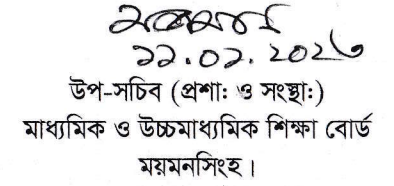 ২২.০২.২০২৩
উপ-সচিব (প্রশাঃ ও সংস্থাঃ)
মাধ্যমিক ও উচ্চমাধ্যমিক শিক্ষা বোর্ড
ময়মনসিংহ।